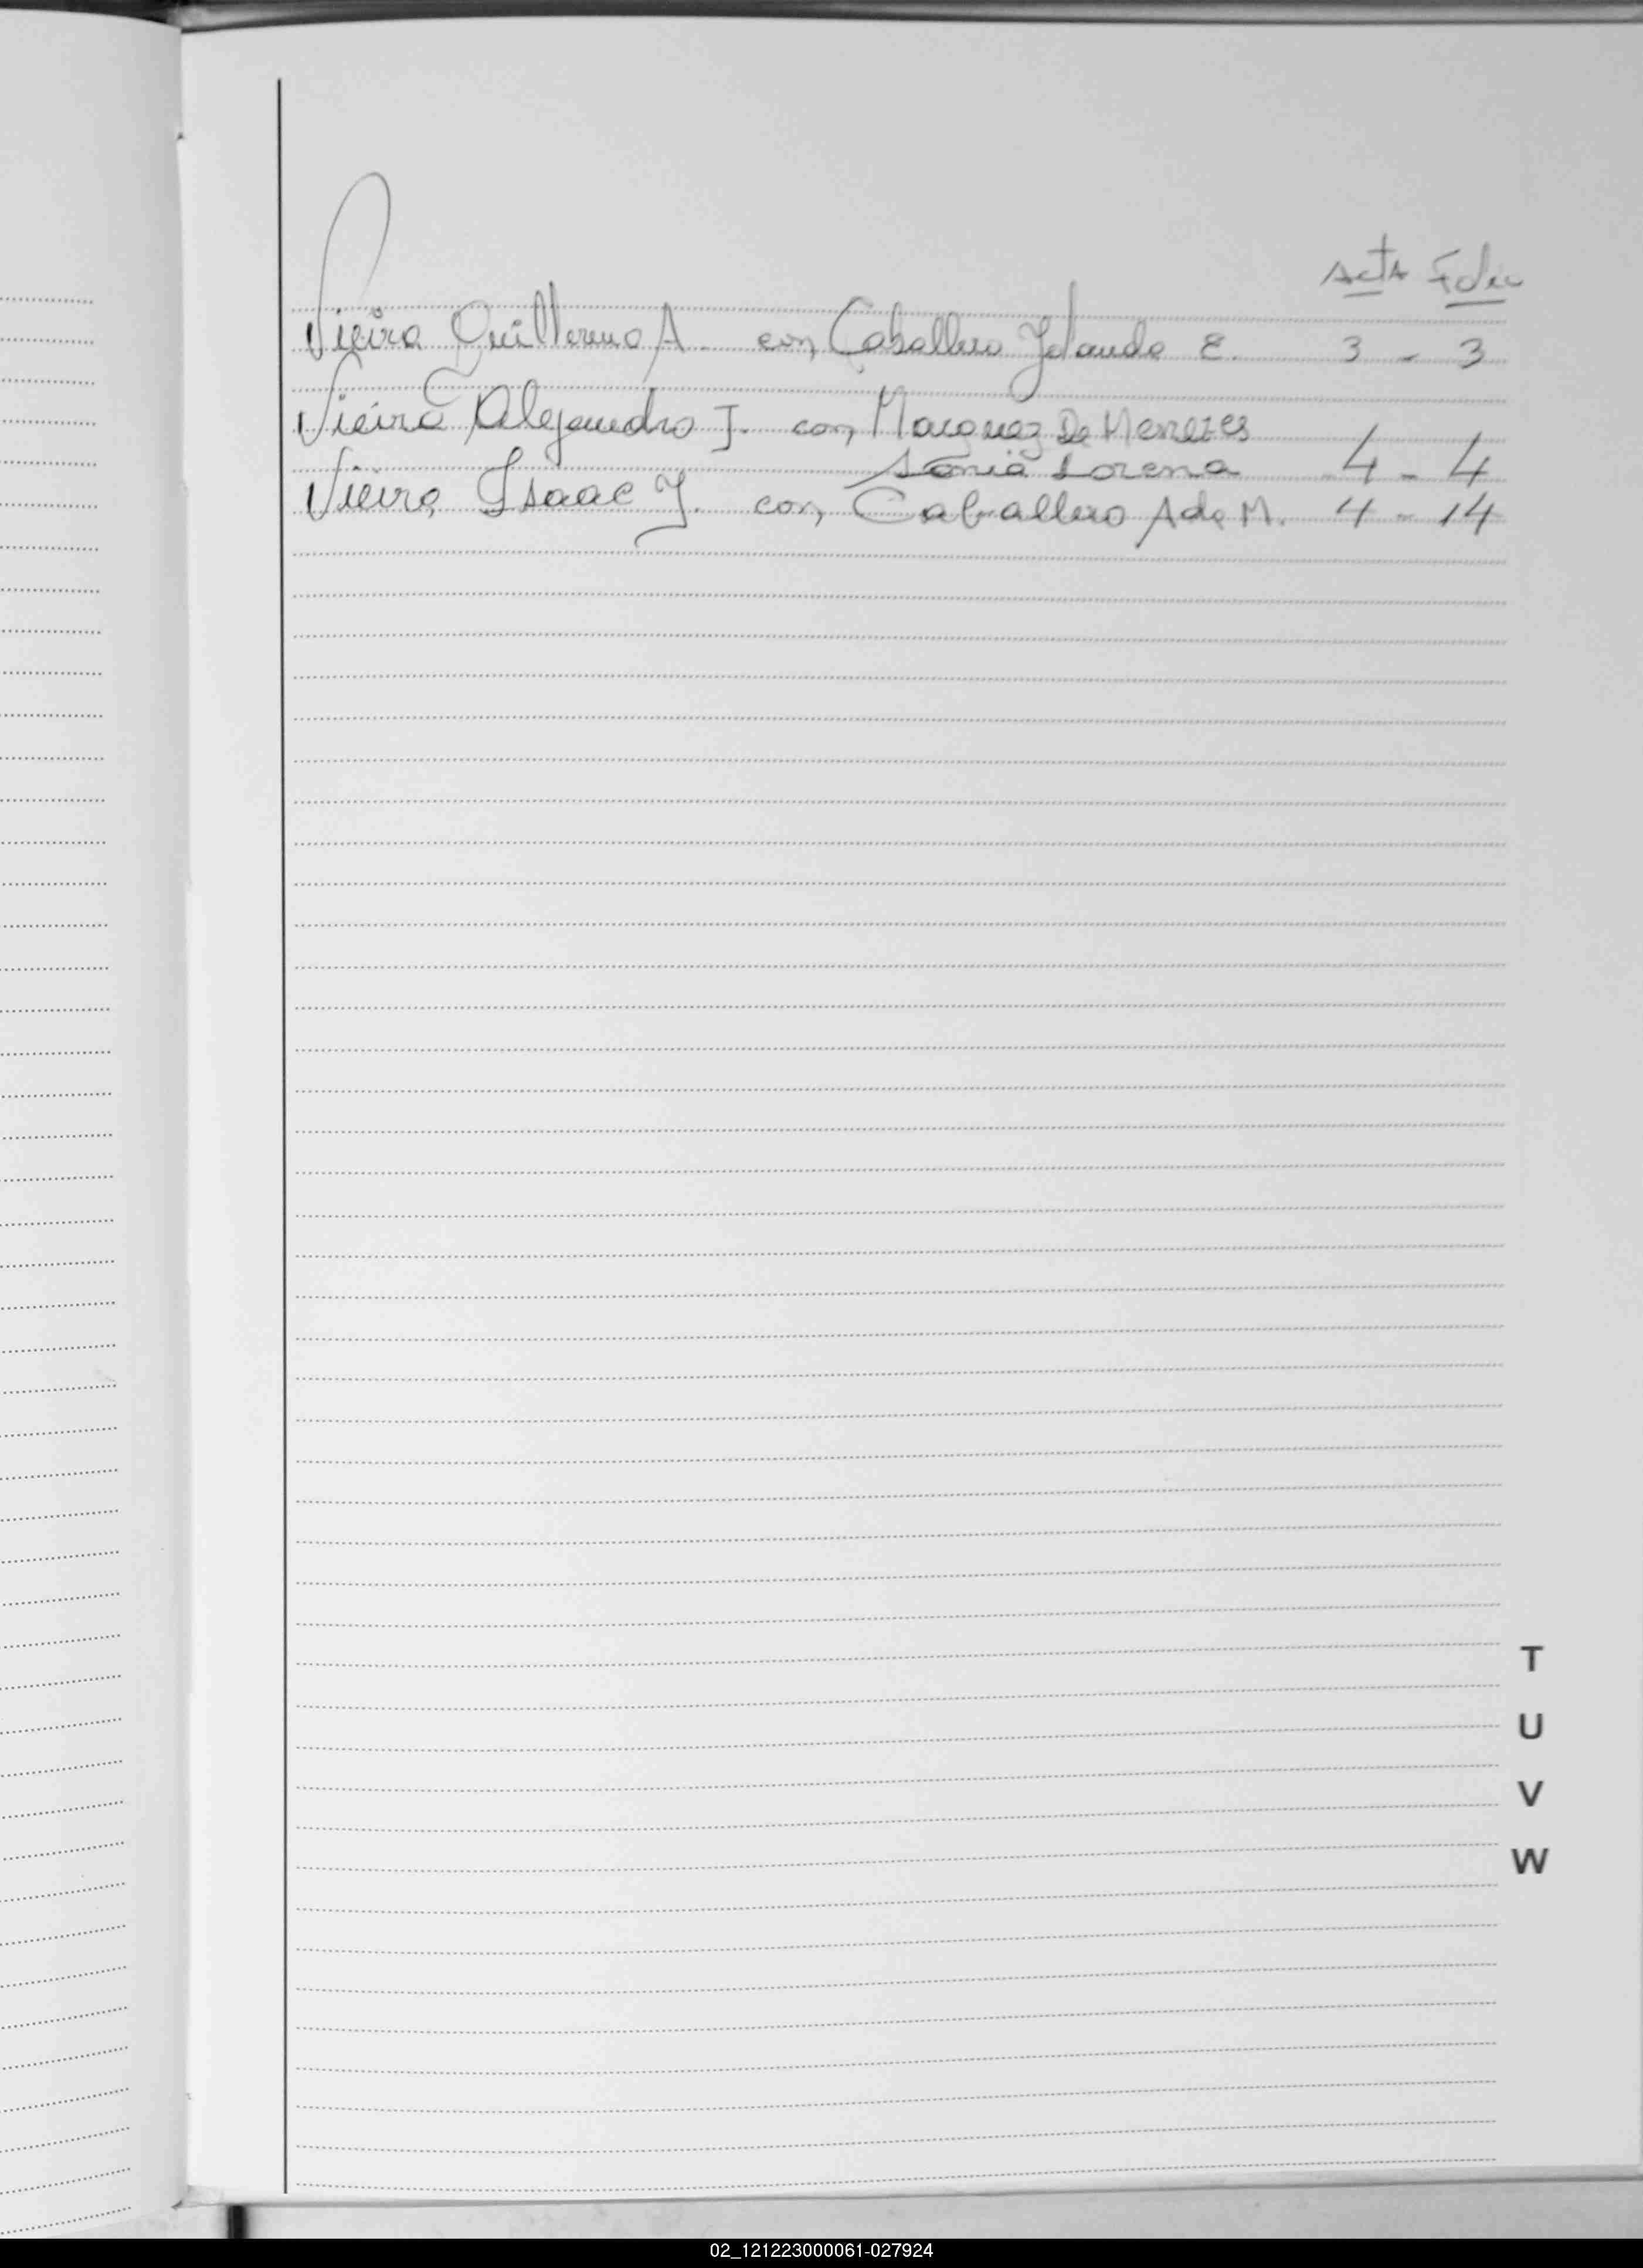 Acta Folio
Vieira Guillermo A. con Caballero Yolanda E. 3 - 3
Vieira Alejandro I. con Marquez De Menezes
Sonia Lorena 4 - 4
Vieira Isaac J. con Caballero Ada M. 4 - 14
T
U
V
W
02_121223000061-027924